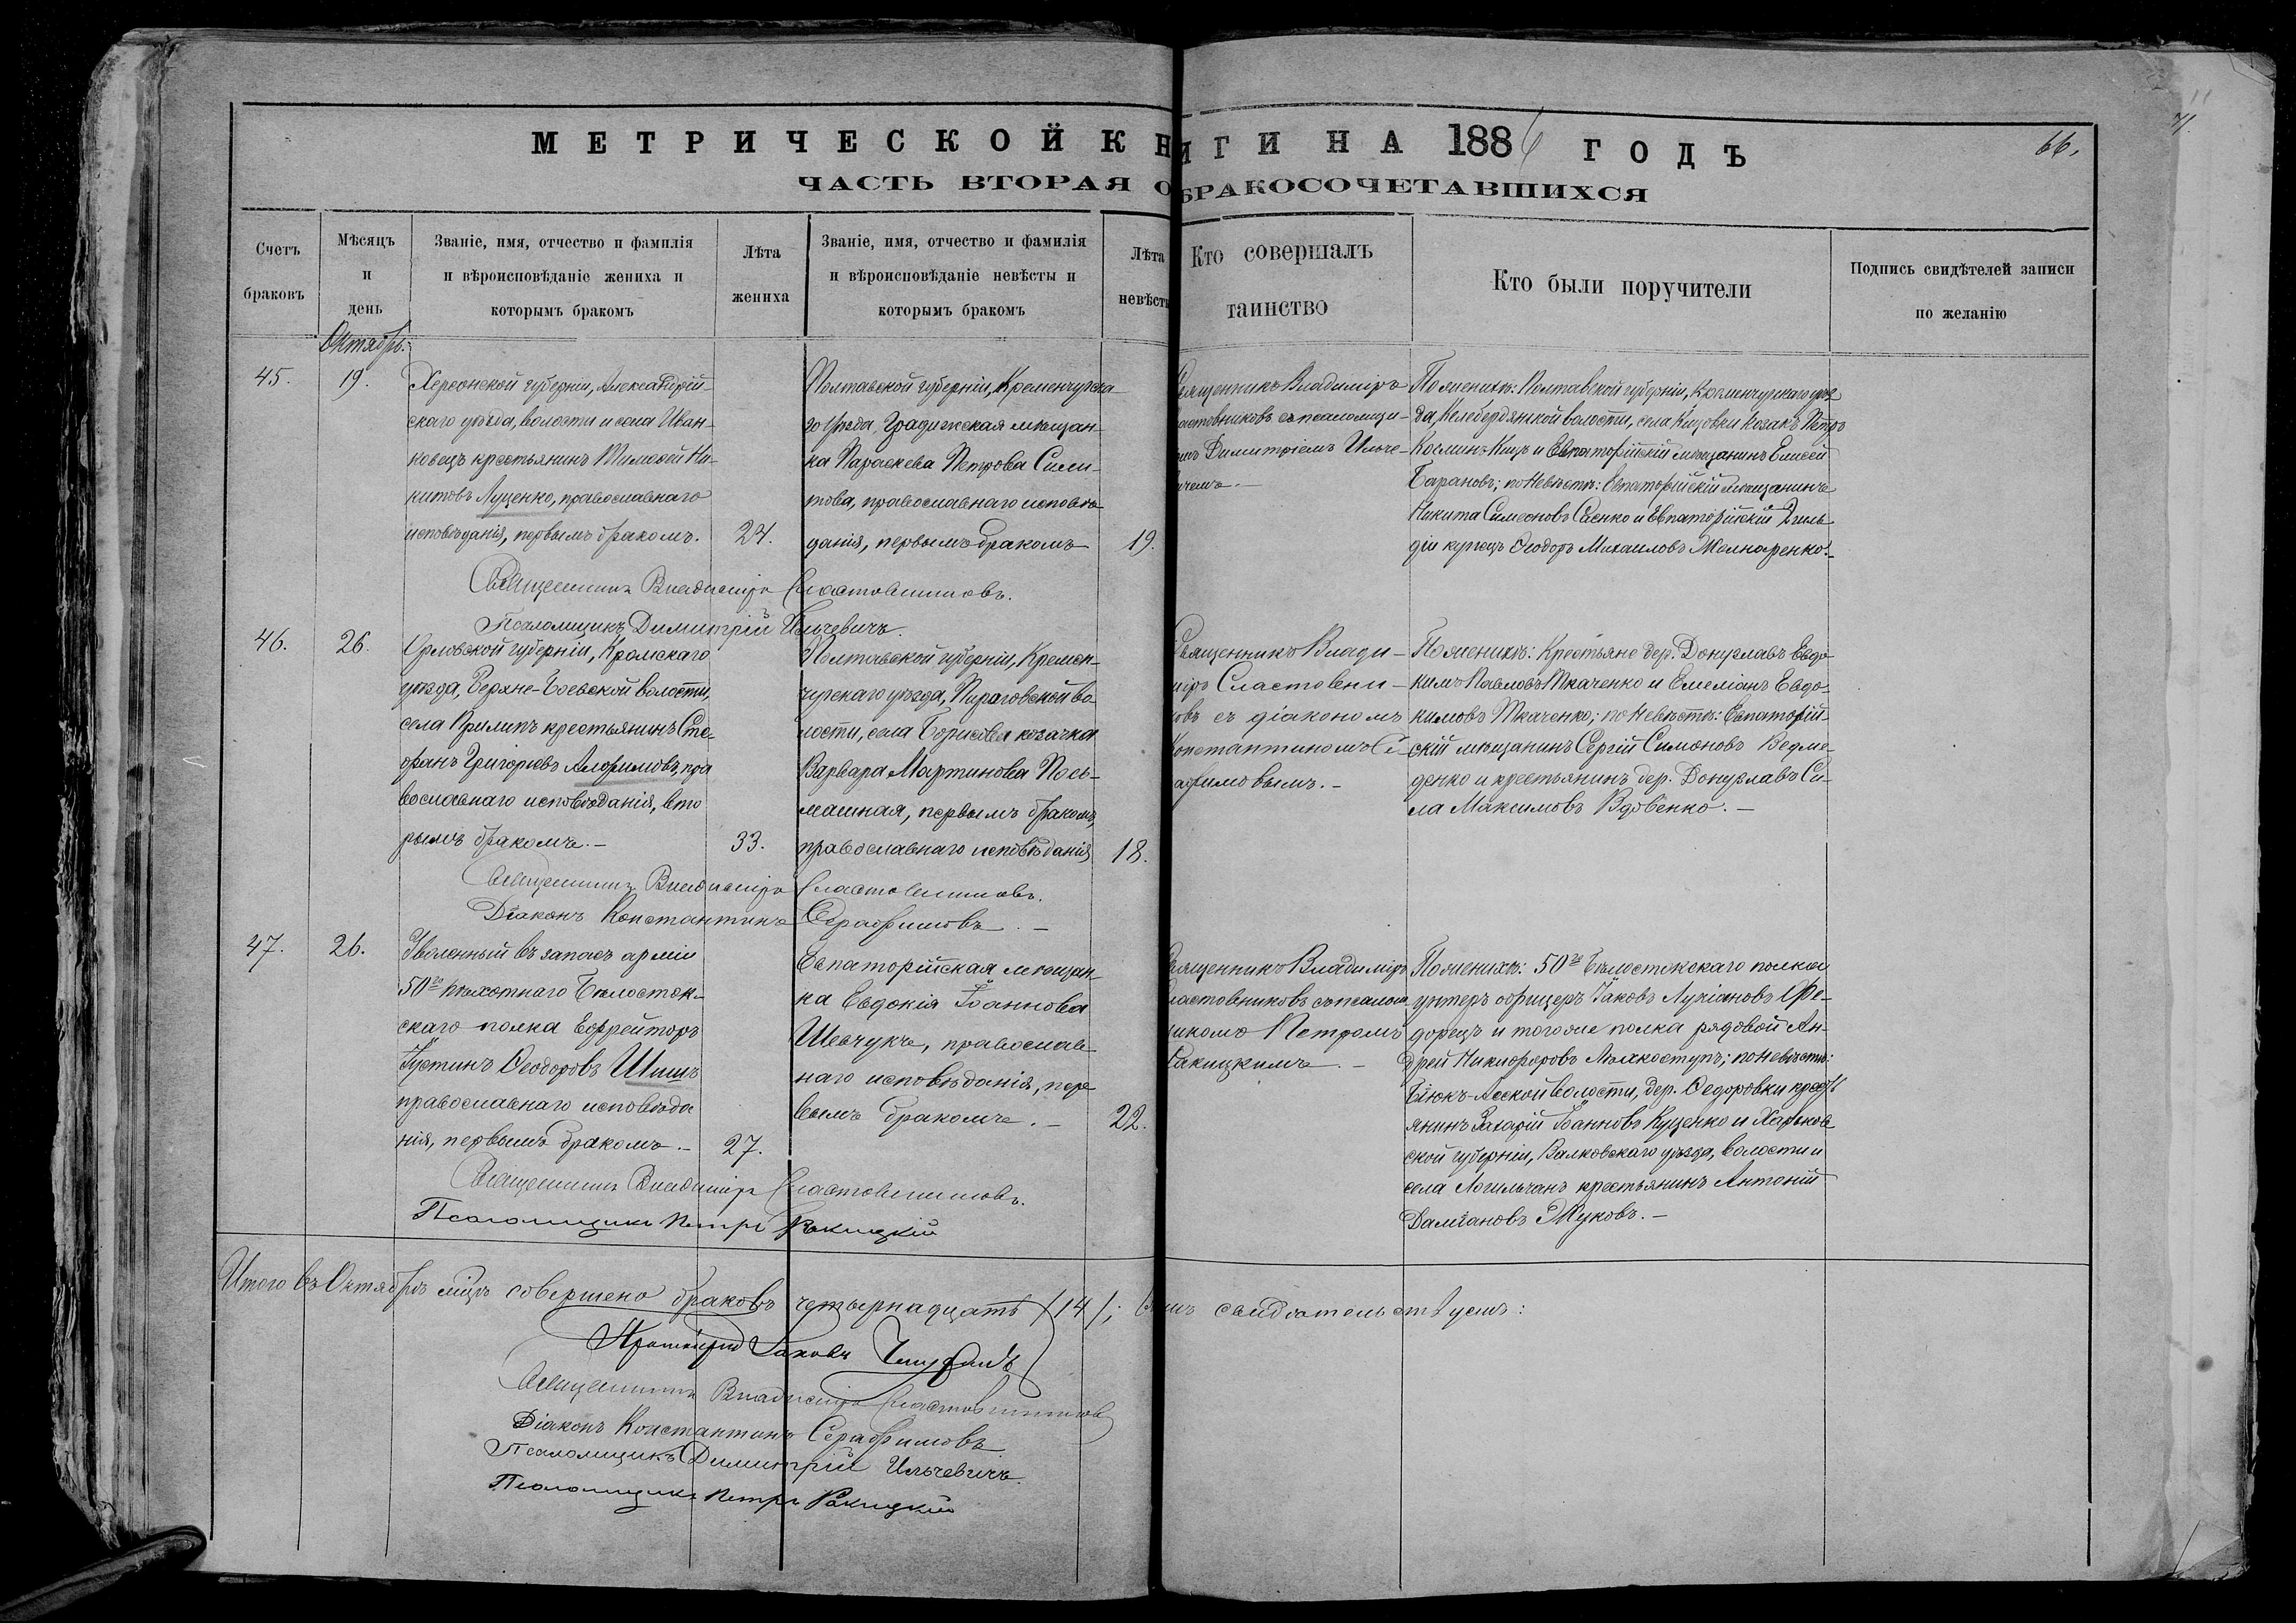 МЕТРИЧЕСКОЙ КНИГИ НА 1886 ГОДЪ
66.
ЧАСТЬ ВТОРАЯ О БРАКОСОЧЕТАВШИХСЯ
Счетъ
браковъ
Мѣсяцъ
и
день
Званіе, имя, отчество и фамилія
и вѣроисповѣданіе жениха и
которымъ бракомъ
Лѣта
жениха
Званіе, имя, отчество и фамилія
и вѣроисповѣданіе невѣсты и
которымъ бракомъ
Лѣта
невѣсты
Кто совершалъ
таинство
Кто были поручители
Подпись свидѣтелей записи
по желанію
Октябрь:
45.
19.
Херсонской губерніи, Александрій-
скаго уѣзда, волости и села Иван-
ковецъ крестьянинъ Тимоѳей Ни-
китовъ Луценко, православнаго
исповѣданія, первымъ бракомъ.
24.
Полтавской губерніи, Кременчугска-
го уѣзда, Градижская мѣщан-
ка Параскева Петрова Сили-
това, православнаго исповѣ-
данія, первымъ бракомъ
19.
Священникъ Владиміръ
Сластовниковъ съ псаломщи-
комъ Димитріемъ Ильче-
вичемъ.-
По женихѣ: Полтавской губерніи, Кременчугскаго уѣз-
да, Келебердянской волости, села Кицовки козакъ Петръ
Косминъ Кицъ и Евпаторійскій мѣщанинъ Елисей
Барановъ; по невѣстѣ: Евпаторійскій мѣщанинъ
Никита Симеоновъ Саенко и Евпаторійскій 2 гиль-
діи купецъ Ѳеодоръ Михаиловъ Жолнаренко.-
Священникъ Владиміръ Сластовниковъ.
Псаломщикъ Димитрій Ильчевичъ.
46.
26.
Орловской губерніи, Кромскаго
уѣзда, Верхне-Боевской волости,
села Прилипъ крестьянинъ Сте-
фанъ Григорьевъ Алфимовъ, пра
вославнаго исповѣданія, вто
рымъ бракомъ.-
33.
Полтавской губерніи, Кремен-
чугскаго уѣзда, Пироговской во-
лости, села Борисовки козачка
Варвара Мартинова Пось-
машная, первымъ бракомъ,
православнаго исповѣданія
18.
Священникъ Влади-
міръ Сластовни-
ковъ съ діакономъ
Константиномъ Се-
рафимовымъ.-
По женихѣ: Крестьяне дер. Донузлавъ Евдо-
кимъ Павловъ Ткаченко и Емеліанъ Евдо-
кимовъ Ткаченко; по невѣстѣ: Евпаторій-
скій мѣщанинъ Сергій Симоновъ Ведме-
денко и крестьянинъ дер. Донузлавъ Си-
ла Максимовъ Вдовенко.-
Священникъ Владиміръ Сластовниковъ.
Діаконъ Константинъ Серафимовъ.-
47.
26.
Уволенный въ запасъ арміи
50го пѣхотнаго Бѣлосток-
скаго полка Ефрейторъ
Іустинъ Ѳеодоровъ Шишъ
православнаго исповѣда
нія, первымъ бракомъ.-
27.
Евпаторійская мѣщан-
ка Евдокія Іоаннова
Шевчукъ, православ-
наго исповѣданія, пер
вымъ бракомъ.-
22.
Священникъ Владиміръ
Сластовниковъ съ псалом-
щикомъ Петромъ
Ракицкимъ.-
По женихѣ: 50го Бѣлостокскаго полка
унтеръ офицеръ Іаковъ Лукіановъ Фе-
дорецъ и того же полка рядовой Ан-
дрей Никифоровъ Ляхкоступъ; по невѣстѣ:
Біюкъ-Асской волости, дер. Ѳедоровки крест
янинъ Захарій Іоанновъ Куценко и Харьков
ской губерніи, Валковскаго уѣзда, волости и
села Огильчанъ крестьянинъ Антоній
Даміановъ Жуковъ.-
Священникъ Владиміръ Сластовниковъ.
Псаломщикъ Петръ Ракицкій
Итого въ Октябрѣ мѣцѣ совершено браковъ четырнадцать /14/; въ чемъ свидѣтельствуемъ:
Протоіерей Іаковъ
Священникъ Владиміръ Сластовниковъ
Діаконъ Константинъ Серафимовъ
Псаломщикъ Димитрій Ильчевичъ.
Псаломщикъ Петръ Ракицкій